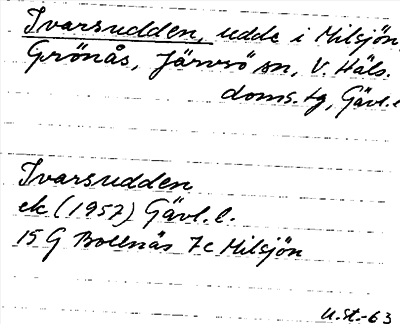 Ivarsudden, udde i Milsjön,
Grönås, Järvsö sn, V. Häls.
doms. tg, Gävl. l
Ivarsudden
ek (1957) Gävl. l.
15 G Bollnäs 7c Milsjön
U.St.-63